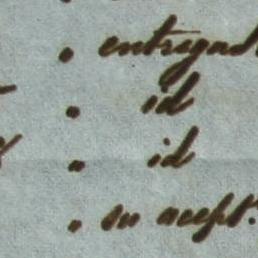 . entregad
. id
. id
. su acept.